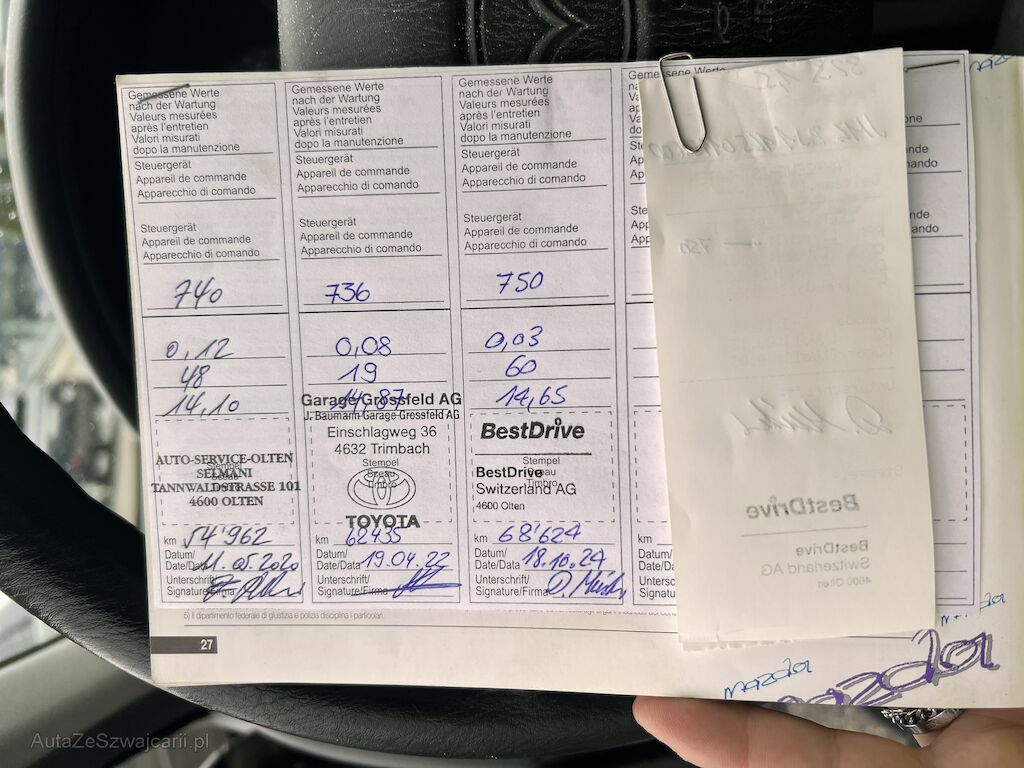 Gemessene Werte
nach der Wartung
Valeurs mesurées
après l'entretien
Valori misurati
dopo la manutenzione
Steuergerät
Appareil de commande
Apparecchio di comando
Steuergerät
Appareil de commande
Apparecchio di comando
740
0,12
48
14,10
AUTO-SERVICE-OLTEN
SELMANI
TANNWALDSTRASSE 101
4600 OLTEN
km 54'962
Datum/
Date/Data 11.05.2020
Unterschrift/
Signature/Firma
Gemessene Werte
nach der Wartung
Valeurs mesurées
après l'entretien
Valori misurati
dopo la manutenzione
Steuergerät
Appareil de commande
Apparecchio di comando
Steuergerät
Appareil de commande
Apparecchio di comando
736
0,08
19
14,87
Garage Grossfeld AG
J. Baumann Garage Grossfeld AG
Einschlagweg 36
4632 Trimbach
Stempel
Sceau
Timbro
TOYOTA
km 62435
Datum/
Date/Data 19.04.22
Unterschrift/
Signature/Firma
Gemessene Werte
nach der Wartung
Valeurs mesurées
après l'entretien
Valori misurati
dopo la manutenzione
Steuergerät
Appareil de commande
Apparecchio di comando
Steuergerät
Appareil de commande
Apparecchio di comando
750
0,03
60
14,65
BestDrive
Stempel
BestDrive
Timbro
Switzerland AG
4600 Olten
km 68'624
Datum/
Date/Data 18.10.24
Unterschrift/
Signature/Firma
Gemessene Werte
km
BestDrive
BestDrive
Switzerland AG
4600 Olten
750
5) Il dipartimento federale di giustizia e polizia disciplina i particolari.
27
mazda
mazda
AutaZeSzwajcarii.pl